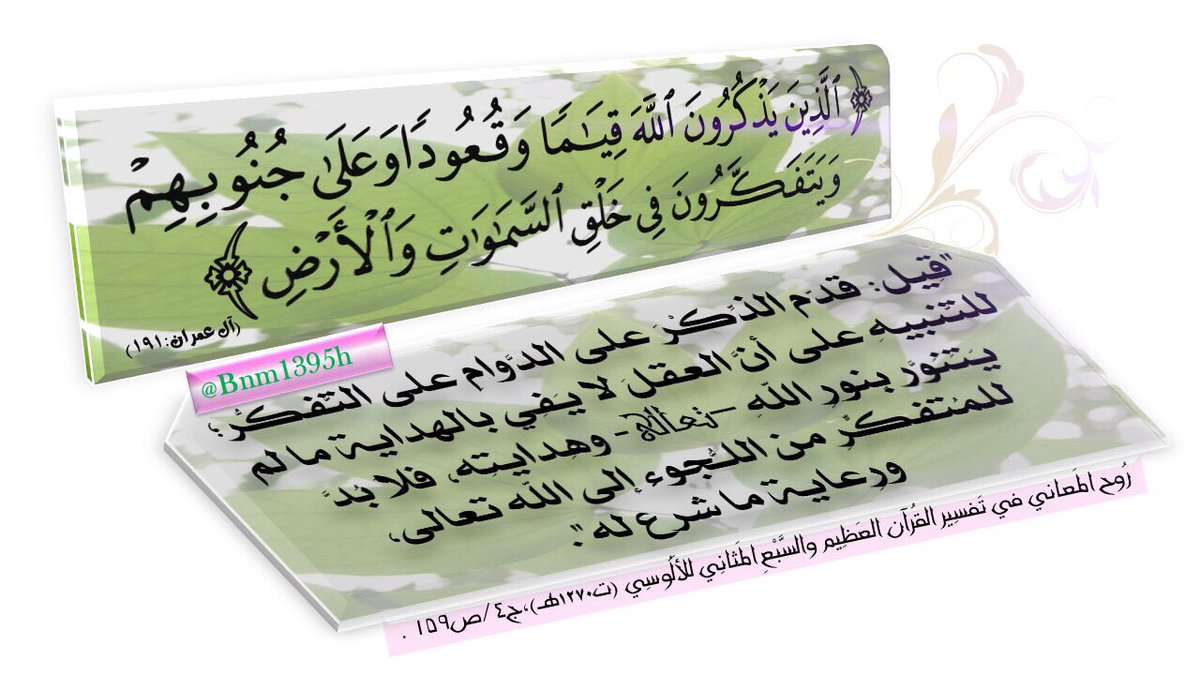 ﴿ ٱلَّذِينَ يَذْكُرُونَ ٱللَّهَ قِيَٰمًا وَقُعُودًا وَعَلَىٰ جُنُوبِهِمْ
وَيَتَفَكَّرُونَ فِى خَلْقِ ٱلسَّمَٰوَٰتِ وَٱلْأَرْضِ ﴾
(آل عمران:١٩١)
@Bnm1395h
"قِيل: قدّم الذِّكْرَ على الدَّوام على التَّفكُّر؛
للتَّنبيهِ على أنَّ العقلَ لا يفي بالهدايةِ ما لم
يتنوَّر بنورِ اللهِ -تعالى- وهدايتِه، فلا بُدَّ
للمُتفكِّر من اللُّجوءِ إلى الله تعالى،
ورعايةِ ما شرع له".
رُوح المَعاني في تَفسِير القُرآن العَظِيم والسَّبْعِ المَثانِي للألُوسِي (ت١٢٧٠هـ)،ج٤/ص١٥٩ .